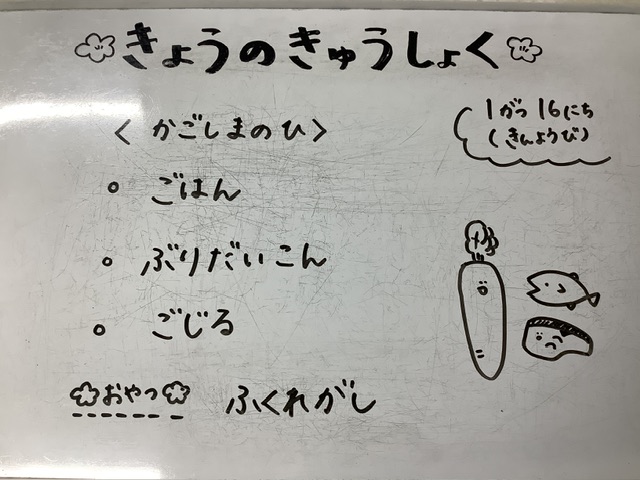 きょうのきゅうしょく
1がつ16にち
(きんようび)
〈 かごしまのひ〉
。ごはん
。ぶりだいこん
。ごじる
おやつ ふくれがし